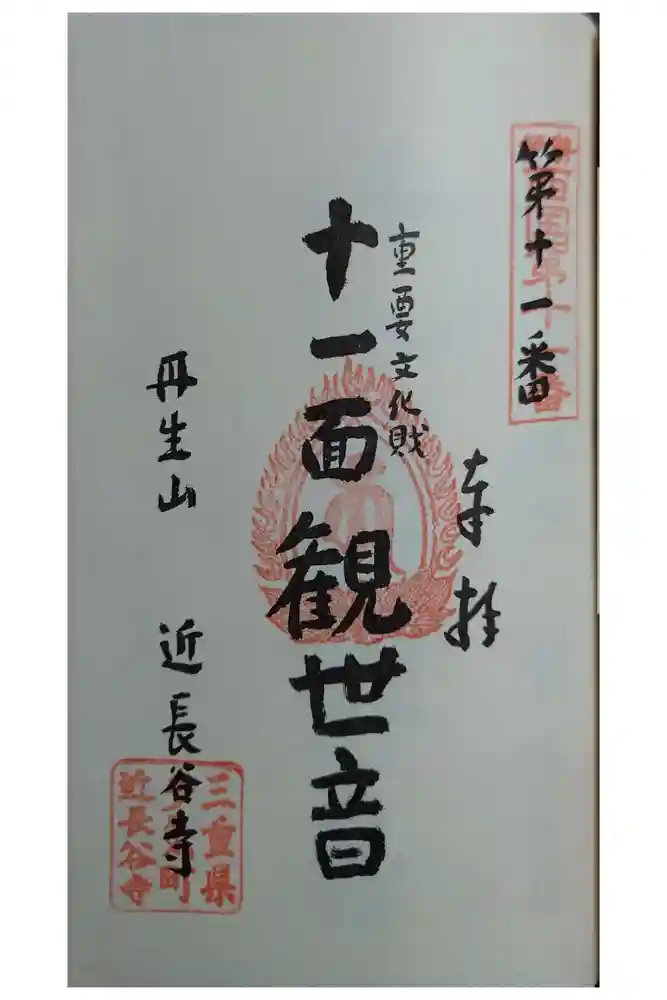 第十一番
奉拝
重要文化財
十一面観世音
丹生山 近長谷寺
三重県
近長谷寺